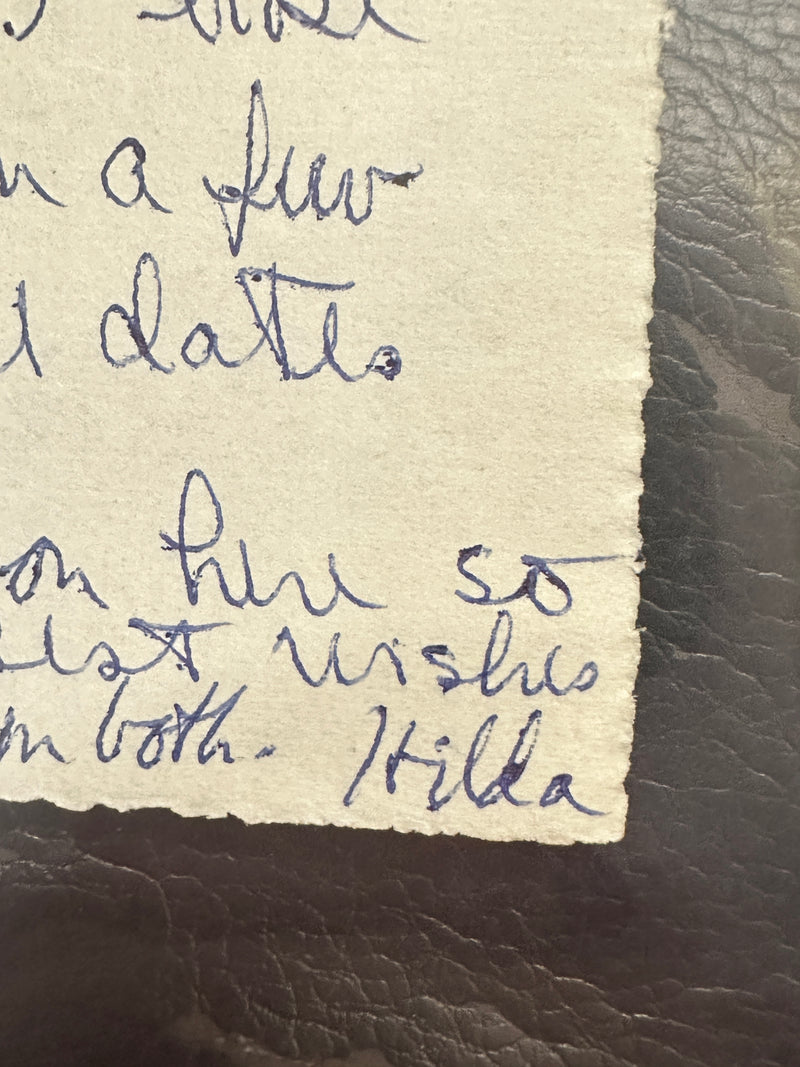 a few
dates
on here so
best wishes
both. Hilda